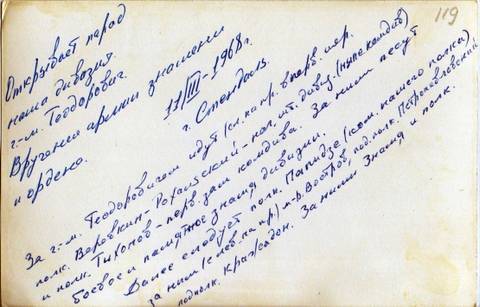 119
Открывает парад
наша дивизия.
г.-м. Теодорович.
Вручение армии знамени
и ордена.
17/III-1968г.
г. Стендаль.
За г.-м. Теодоровичем идут (сл. напр. в перв. шер.
полк. Веровкин-Рохальский - нач. шт. дивиз. (ныне комдив)
и полк. Тихонов - перв. зам комдива. За ним несут
боевое и памятное знамя дивизии.
Далее следует полк. Папидзе (ком. нашего полка)
за ним (слев. на пр.) м-р Востров, подполк. Петропавловский
подполк. Кранадон. За ними Знамя и полк.